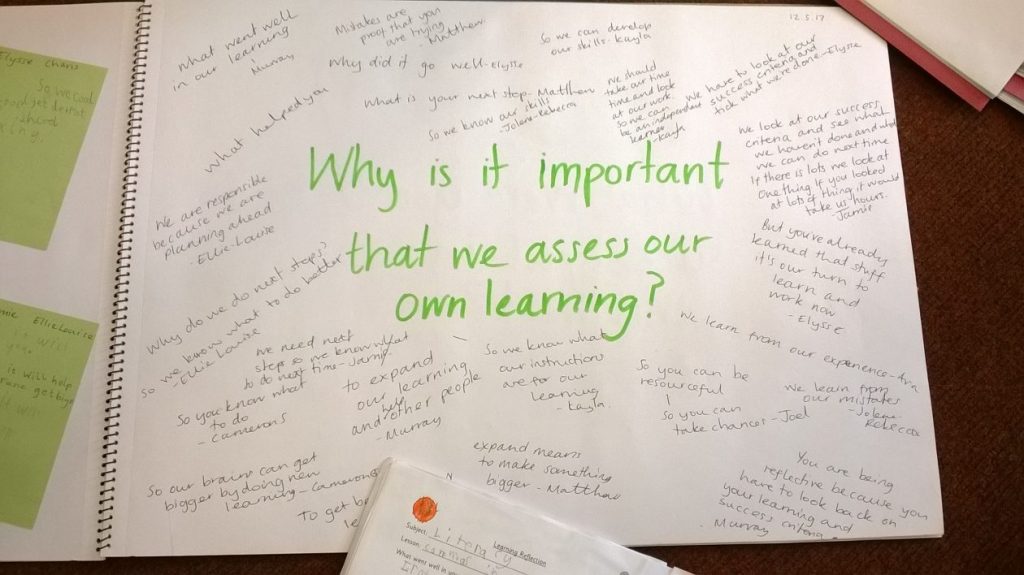 12.5.17
what went well
in our learning
Murray
Mistakes are
proof that you
are trying
- Matthew
So we can develop
our skills - Kayla
Why did it go well - Elysse
What helped you
What is your next step - Matthew
So we know our skills
- Jolene-Rebecca
we should
take our time
time and look
at our work.
so we can
be an independent
learner
- Kayla
We have to look at our
success criteria and
tick what we're done - Elysse
we look at our success
criteria and see what
we haven't done and what
we can do next time
If there is lots we look at
one thing if you looked
at lots of thing it would
take us hours.
- Jamie
Why is it important
that we assess our
own learning?
We are responsible
because we are
planning ahead
- Ellie-Louise
But you're already
learned that stuff
it's our turn to
learn and
work now
- Elysse
Why do we do next steps?
so we know what to do better
- Ellie Louise
we need next
steps so we know what
to do next time - Jamie
So you know what
to do
- Camerons
to expand
our learning
and help other people
- Murray
So we know what
our instructions
are for our
learning
- Kayla
We learn from our experience
So you can be
resourceful
So you can
take chances - Joel
we learn from
our mistakes
- Jolene
Rebecca
So our brains can get
bigger by doing new
learning - Camerons
To get be
le
expand means
to make something
bigger - Matthew
You are being
reflective because you
have to look back on
your learning and
success criteria
- Murray
Elysse
So we can
Ellie Louise
will help
Learning Reflection
Subject: Literacy
Lesson:
What went well in